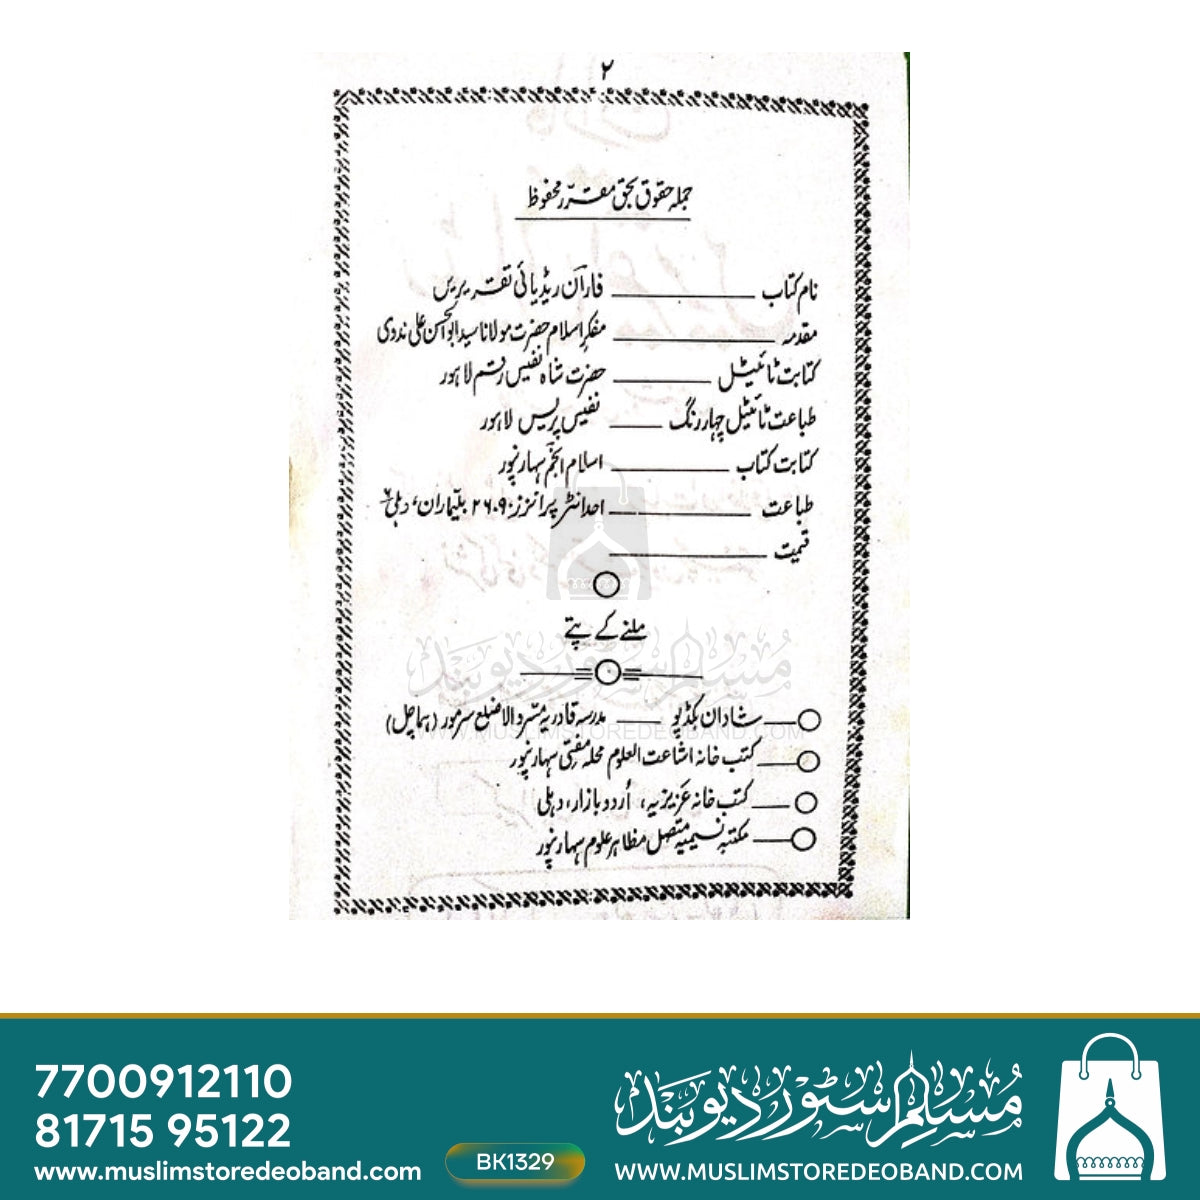 ۲
جملہ حقوق بحق مقرر محفوظ
نام کتاب ______ فاران ریڈیائی تقریریں
مقدمہ ______ مفکر اسلام حضرت مولانا سید ابوالحسن علی ندوی
کتابت ٹائیٹل ______ حضرت شاہ نفیس رقم لاہور
طباعت ٹائیٹل چہار رنگ ______ نفیس پریس لاہور
کتابت کتاب ______ اسلام انجم سہارنپور
طباعت ______ احد انٹر پرائزز، ۲۶۰۹ بلیماران، دہلی ۶
قیمت ______
ملنے کے پتے
شادان بکڈپو ___ مدرسہ قادریہ مسروالا ضلع سرمور (ہماچل)
کتب خانہ اشاعت العلوم محلہ مفتی سہارنپور
کتب خانہ عزیزیہ، اُردو بازار، دہلی
مکتبہ نسیمیہ متصل مظاہر علوم سہارنپور
مسلم سٹور دیوبند
WWW.MUSLIMSTOREDEOBAND.COM
7700912110
81715 95122
www.muslimstoredeoband.com
BK1329
مسلم سٹور دیوبند
WWW.MUSLIMSTOREDEOBAND.COM